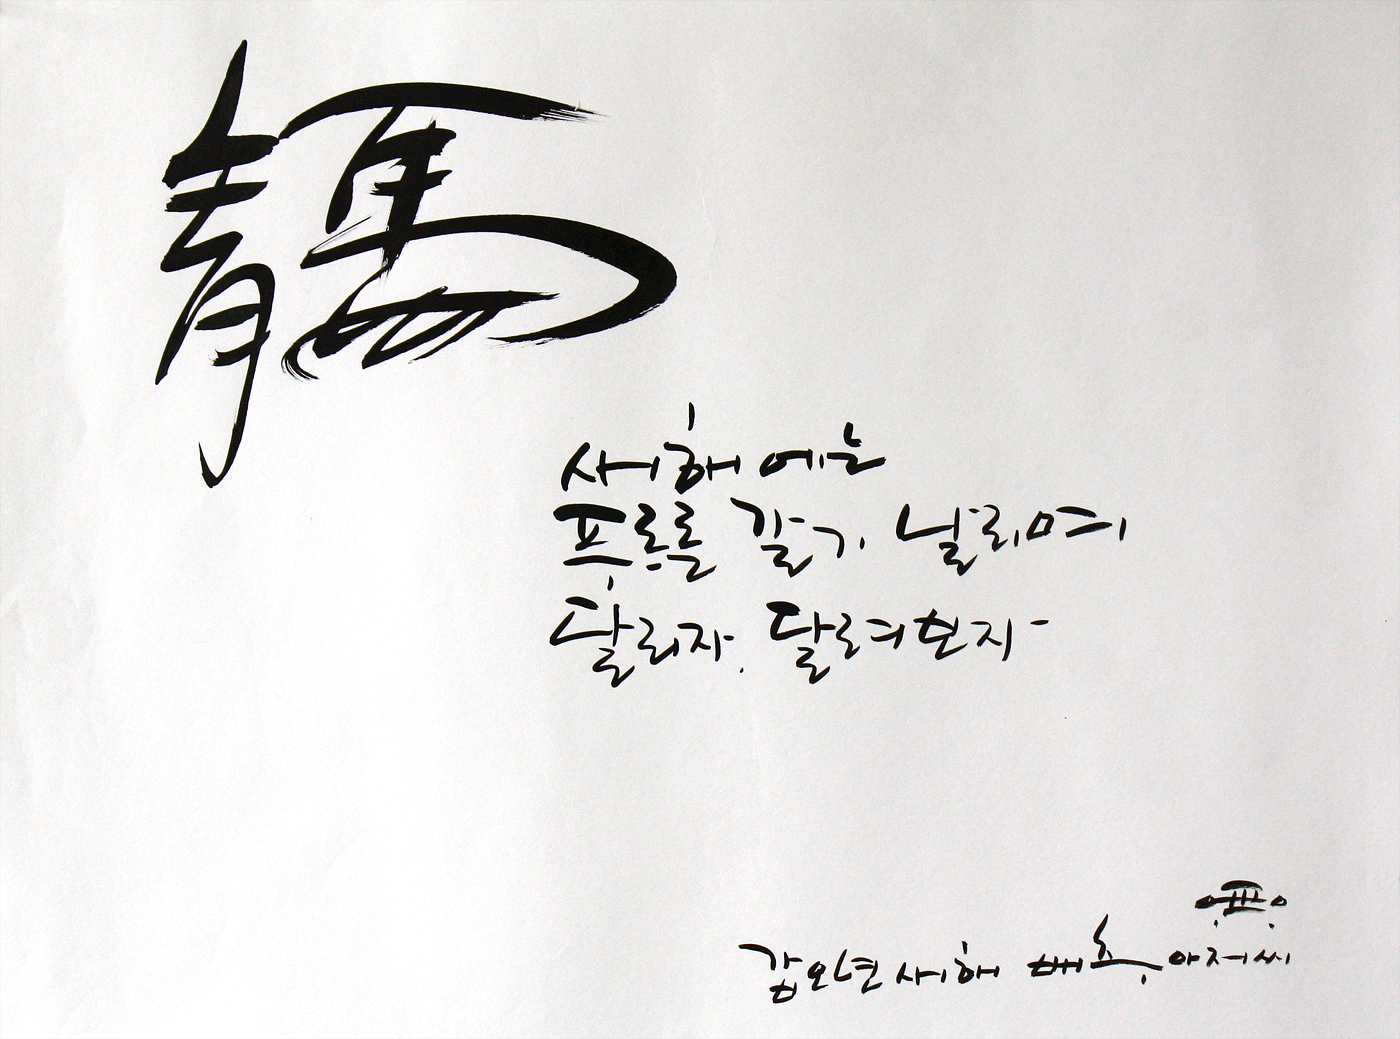 靑馬
새해에는
푸르른 갈기 날리며
달리자. 달려보자
갑오년 새해 배추 아저씨